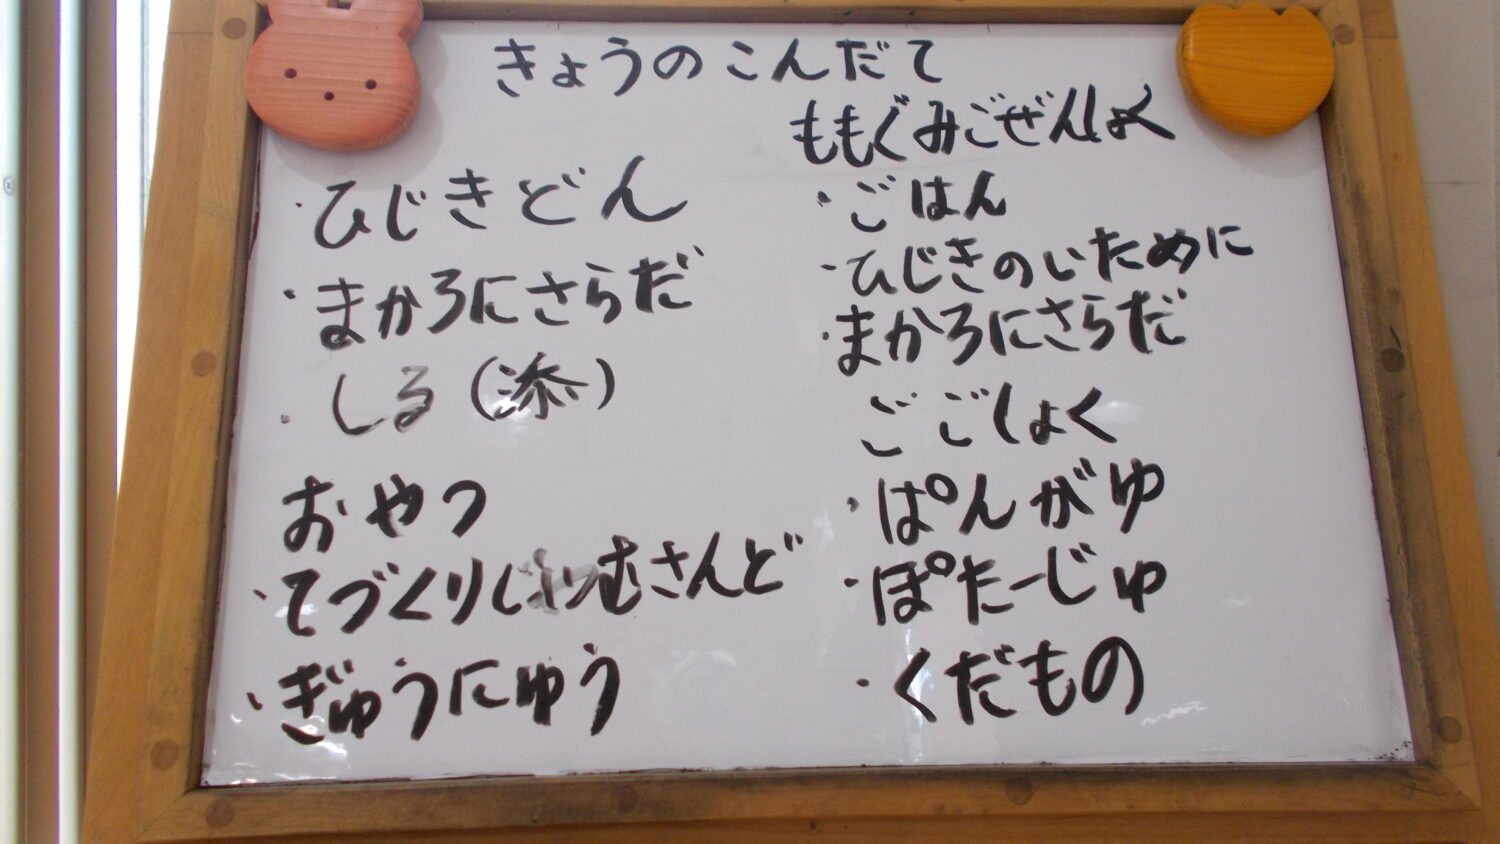 きょうのこんだて
・ひじきどん
・まかろにさらだ
・しる(添)
おやつ
・てづくりじゃむさんど
・ぎゅうにゅう
ももぐみごぜんしょく
・ごはん
・ひじきのいために
・まかろにさらだ
ごごしょく
・ぱんがゆ
・ぽたーじゅ
・くだもの